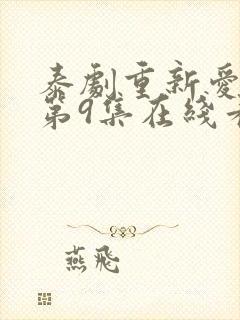 泰劇重新愛
第9集在綫
燕飛